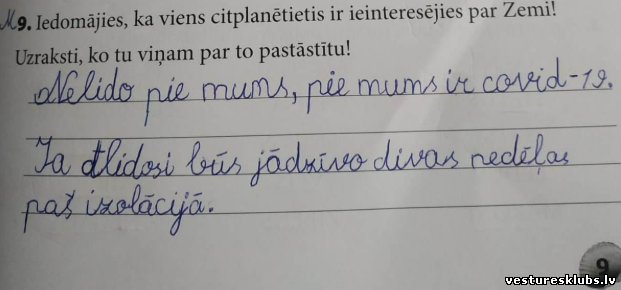 M9. Iedomājies, ka viens citplanētietis ir ieinteresējies par Zemi!
Uzraksti, ko tu viņam par to pastāstītu!
Nelido pie mums, pie mums ir covid-19.
Ja atlidosi būs jādzīvo divas nedēļas
paš izolācijā.
9
vesturesklubs.lv